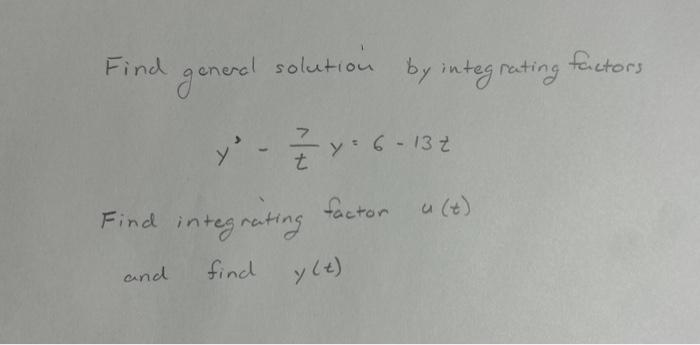 Find general solution by integrating factors
y' - 7/t y = 6 - 13t
Find integrating factor u(t)
and find y(t)